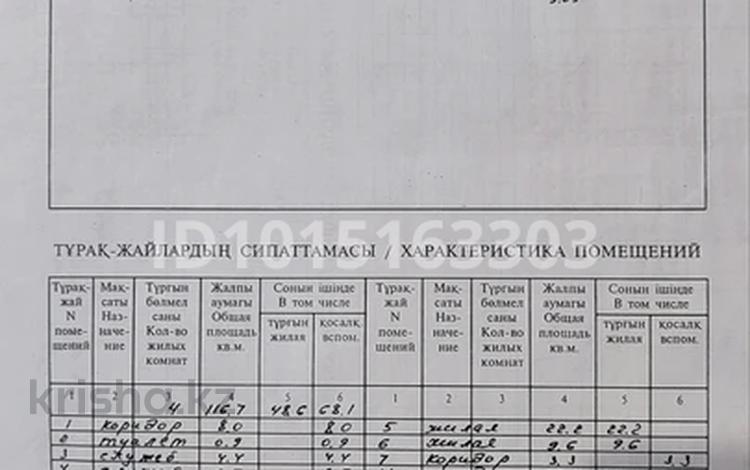 ID1015163303
ТҰРАҚ-ЖАЙЛАРДЫҢ СИПАТТАМАСЫ / ХАРАКТЕРИСТИКА ПОМЕЩЕНИЙ
Тұрақ-жай N поме-щений Мақ-саты Наз-наче-ние Тұрғын бөлмел саны Кол-во жилых комнат Жалпы аумағы Общая площадь кв.м. Сонын ішінде В том числе тұрғын жилая қосалқ. вспом. Тұрақ-жай N поме-щений Мақ-саты Наз-наче-ние Тұрғын бөлмел саны Кол-во жилых комнат Жалпы аумағы Общая площадь кв.м. Сонын ішінде В том числе тұрғын жилая қосалқ. вспом.
1 2 3 4 5 6 1 2 3 4 5 6
4 116,7 48,6 68,1
krisha.kz
1 коридор 8,0 8,0 5 жилая 22,2 22,2
2 туалет 0,9 0,9 6 жилая 9,6 9,6
3 служеб 4,4 4,4 7 коридор 3,3 3,3